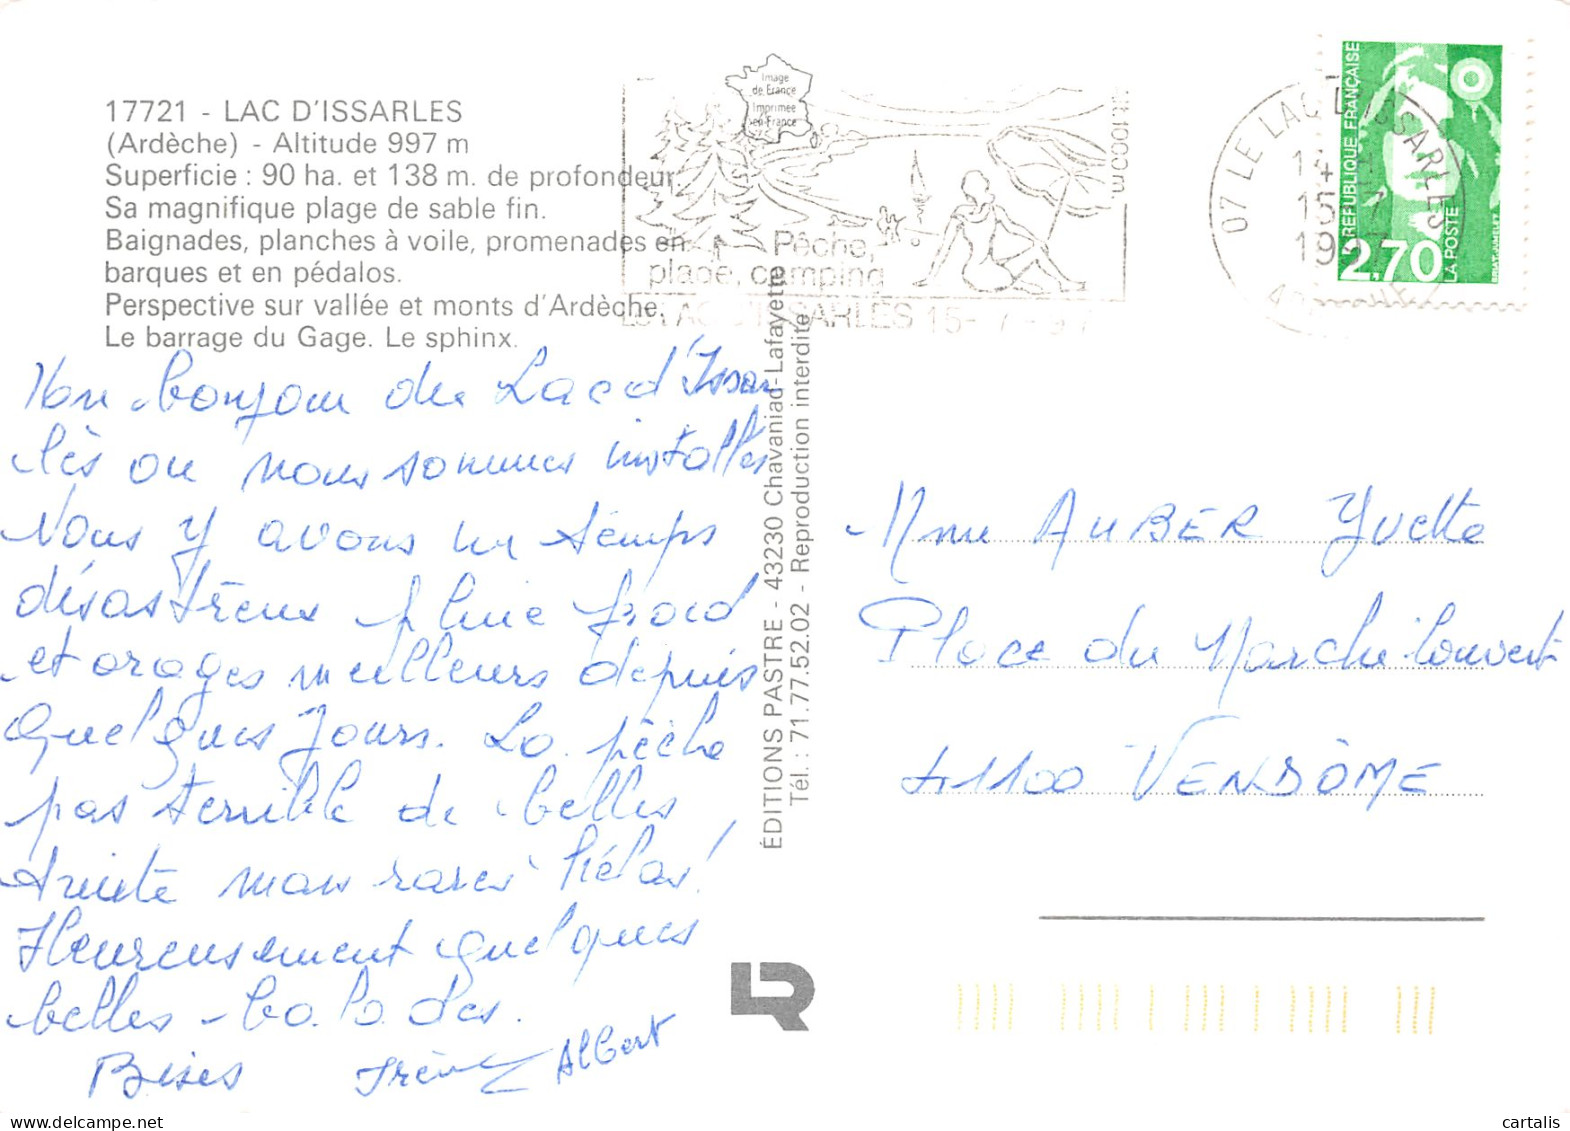 17721 - LAC D'ISSARLES
(Ardèche) - Altitude 997 m
Superficie : 90 ha. et 138 m. de profondeur.
Sa magnifique plage de sable fin.
Baignades, planches à voile, promenades en
barques et en pédalos.
Perspective sur vallée et monts d'Ardèche.
Le barrage du Gage. Le sphinx.
Image
de France
Imprimée
en France
Alt. 1000 m
Pêche,
plage, camping
LE LAC D'ISSARLES 15-7-97
07 LE LAC D'ISSARLES
14 H
15-7
1997
ARDECHE
RÉPUBLIQUE FRANÇAISE
2,70
LA POSTE
Mon bonjour du Lac d'Issar
lès ou nous sommes installés
Nous y avons un temps
désastreux pluie froid
et orages meilleurs depuis
quelques jours. La pêche
pas terrible de belles
truite mais rares hélas!
Heureusement quelques
belles balades.
Bises Irène Albert
ÉDITIONS PASTRE - 43230 Chavaniac-Lafayette
Tél. : 71.77.52.02 - Reproduction interdite
Mme AUBER Yvette
Place du Marché Couvert
41100 VENDÔME
LR
cartalis